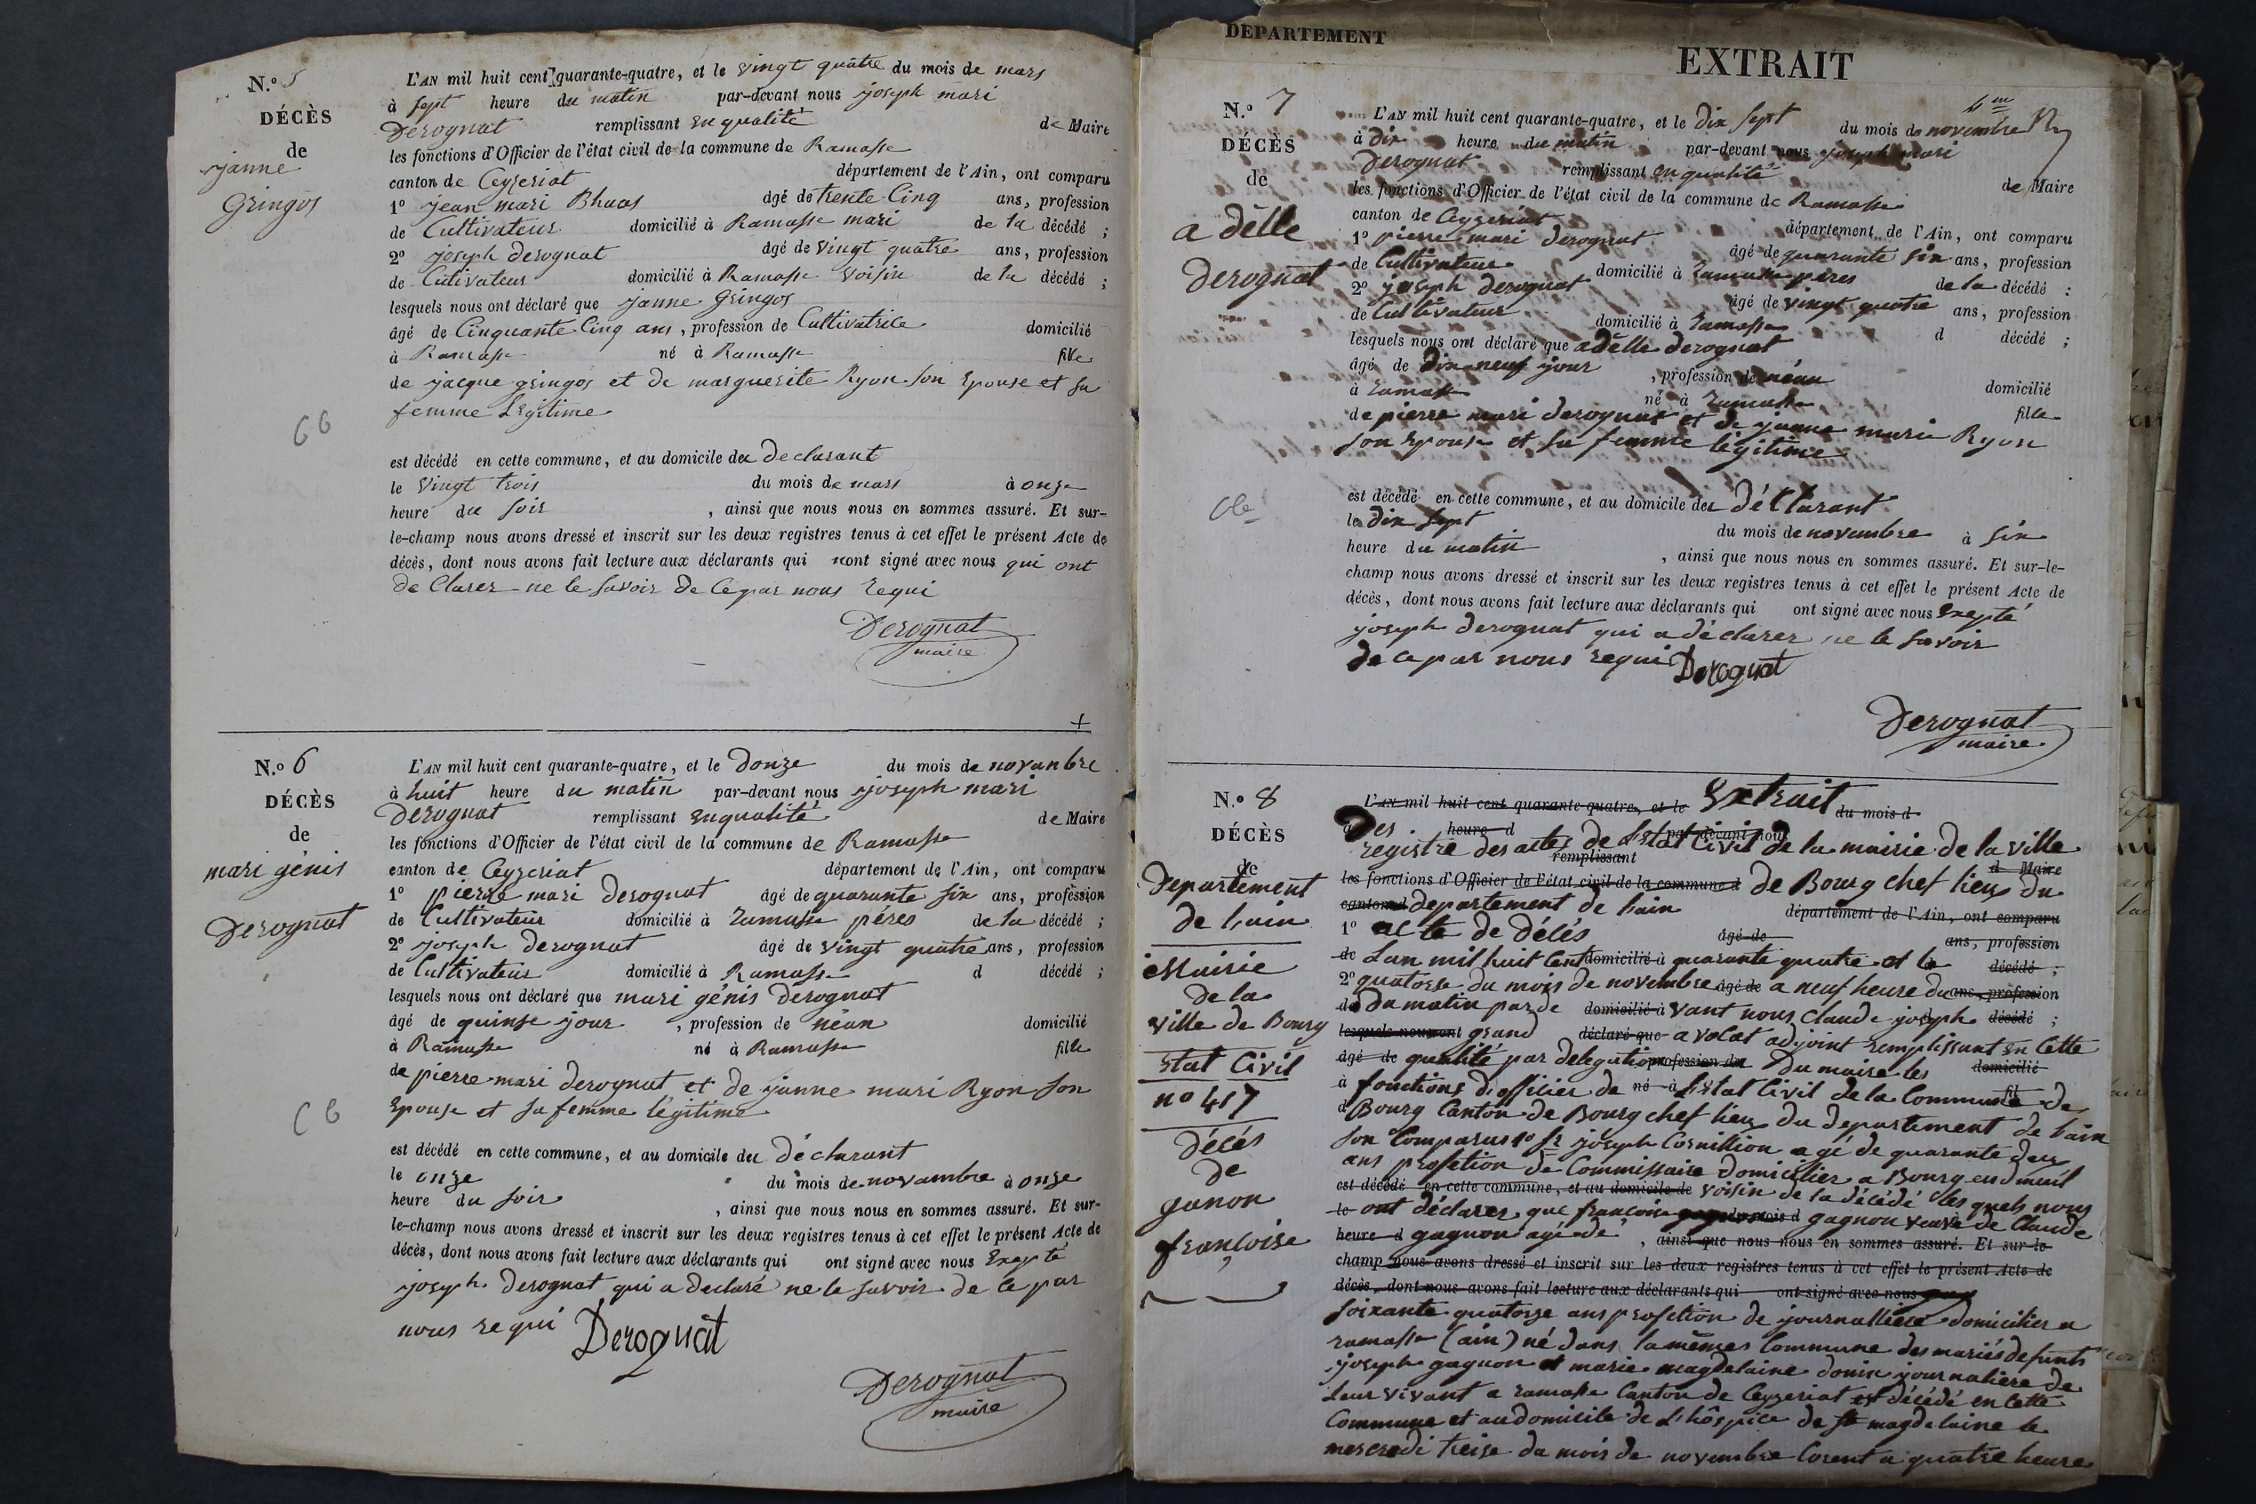 N.o 5
DÉCÈS
de
janne
Gringoz
L'AN mil huit cent quarante-quatre, et le vingt quatre du mois de mars
à sept heure du matin par-devant nous joseph mari
Derognat remplissant en qualité de Maire
les fonctions d'Officier de l'état civil de la commune de Ramasse
canton de Ceyzeriat département de l'Ain, ont comparu
1o jean mari âgé de trente Cinq ans, profession
de Cultivateur domicilié à Ramasse mari de la décédé ;
2o joseph derognat âgé de vingt quatre ans, profession
de Cultivateur domicilié à Ramasse voisin de la décédé ;
lesquels nous ont déclaré que janne Gringoz
âgé de Cinquante Cinq ans, profession de Cultivatrice domicilié
à Ramasse né à Ramasse fille
de jacque gringoz et de marguerite Ryon son Epouse et sa
femme Légitime
est décédé en cette commune, et au domicile du declarant
le vingt trois du mois de mars à onze
heure du soir, ainsi que nous nous en sommes assuré. Et sur-
le-champ nous avons dressé et inscrit sur les deux registres tenus à cet effet le présent Acte de
décès, dont nous avons fait lecture aux déclarants qui nont signé avec nous qui ont
de Clarer ne le savoir de ce par nous requi
Derognat
maire
N.o 6
DÉCÈS
de
mari génis
Derognat
L'AN mil huit cent quarante-quatre, et le douze du mois de novanbre
à huit heure du matin par-devant nous joseph mari
Derognat remplissant en qualité de Maire
les fonctions d'Officier de l'état civil de la commune de Ramasse
canton de Ceyzeriat département de l'Ain, ont comparu
1o pierre mari derognat âgé de quarante six ans, profession
de Cultivateur domicilié à ramasse péres de la décédé ;
2o joseph derognat âgé de vingt quatre ans, profession
de Cultivateur domicilié à Ramasse d décédé ;
lesquels nous ont déclaré que mari génis derognat
âgé de quinse jour, profession de néan domicilié
à Ramasse né à Ramasse fille
de pierre mari derognat et de janne mari Ryon son
Epouse et sa femme légitime
est décédé en cette commune, et au domicile du déclarant
le onze du mois de novambre à onze
heure du soir, ainsi que nous nous en sommes assuré. Et sur-
le-champ nous avons dressé et inscrit sur les deux registres tenus à cet effet le présent Acte de
décès, dont nous avons fait lecture aux déclarants qui ont signé avec nous Exepté
joseph derognat qui a declaré ne le savoir de ce par
nous requi Derognat
Derognat
maire
DEPARTEMENT
EXTRAIT
N.o 7
DÉCÈS
de
adélle
derognat
L'AN mil huit cent quarante-quatre, et le dix sept du mois de novembre
à dix heure du matin par-devant nous joseph mari
Derognat remplissant en qualité de Maire
les fonctions d'Officier de l'état civil de la commune de Ramasse
canton de Ceyzeriat département de l'Ain, ont comparu
1o pierre mari derognat âgé de quarante six ans, profession
de Cultivateur domicilié à ramasse péres de la décédé ;
2o joseph derognat âgé de vingt quatre ans, profession
de Cultivateur domicilié à ramasse d décédé ;
lesquels nous ont déclaré que adélle derognat
âgé de dix neuf jour, profession de néan domicilié
à ramasse né à ramasse fille
de pierre mari derognat et de janne marie Ryon
son Epouse et sa femme légitime
est décédé en cette commune, et au domicile du déClarant
le dix sept du mois de novembre à six
heure du matin, ainsi que nous nous en sommes assuré. Et sur-le-
champ nous avons dressé et inscrit sur les deux registres tenus à cet effet le présent Acte de
décès, dont nous avons fait lecture aux déclarants qui ont signé avec nous Exepté
joseph derognat qui a déclarer ne le savoir
de ce par nous requi Derognat
Derognat
maire
N.o 8
DÉCÈS
de
Departement
de lain
Mairie
de la
ville de Bourg
Etat Civil
no 417
décés
de
ganon
françoise
L'AN mil huit cent quarante-quatre, et le Extrait du mois d
Des heure d par-devant nous
registre des actes de l'Etat Civil de la mairie de la ville
remplissant d Maire
les fonctions d'Officier de l'état civil de la commune d de Bourg chef lieu du
canton d departement de lain département de l'Ain, ont comparu
1o acte de décés âgé de ans, profession
de Lan mil huit Cent domicilié à quarante quatre et le décédé ;
2o quatorse du mois de novembre âgé de a neuf heure du ans, profession
d du matin par de domicilié à vant nous Claude joseph décédé ;
lesquels nous ont grand déclaré que avocat adjoint remplissant en Cette
âgé de qualité par delegation profession de Du maire les domicilié
à fonctions d'officier de né à l'Etat Civil de la Commune de fil
d Bourg Canton de Bourg chef lieu du departement de lain
son Comparus 1o joseph Cornillion agé de quarante deux
ans profétion de Commissaire domicilier a Bourg
est décédé en cette commune, et au domicile de voisin de la décédé les quels nous
le ont déclarer que françoise du mois d gagnon veuve de Claude
heure d gagnon agé de, ainsi que nous nous en sommes assuré. Et sur-le-
champ nous avons dressé et inscrit sur les deux registres tenus à cet effet le présent Acte de
décès, dont nous avons fait lecture aux déclarants qui ont signé avec nous
soixante quatorze ans profetion de journalliere domicilier a
ramasse (ain) né dans la mêmes Commune des mariés defunts
joseph gagnon et marie magdelaine donin journaliere de
leur vivant a ramasse Canton de Ceyzeriat est décédé en Cette
Commune et au domicile de L'hôspice de Ste magdelaine le
mercredi treise du mois de novembre Corent a quatre heure